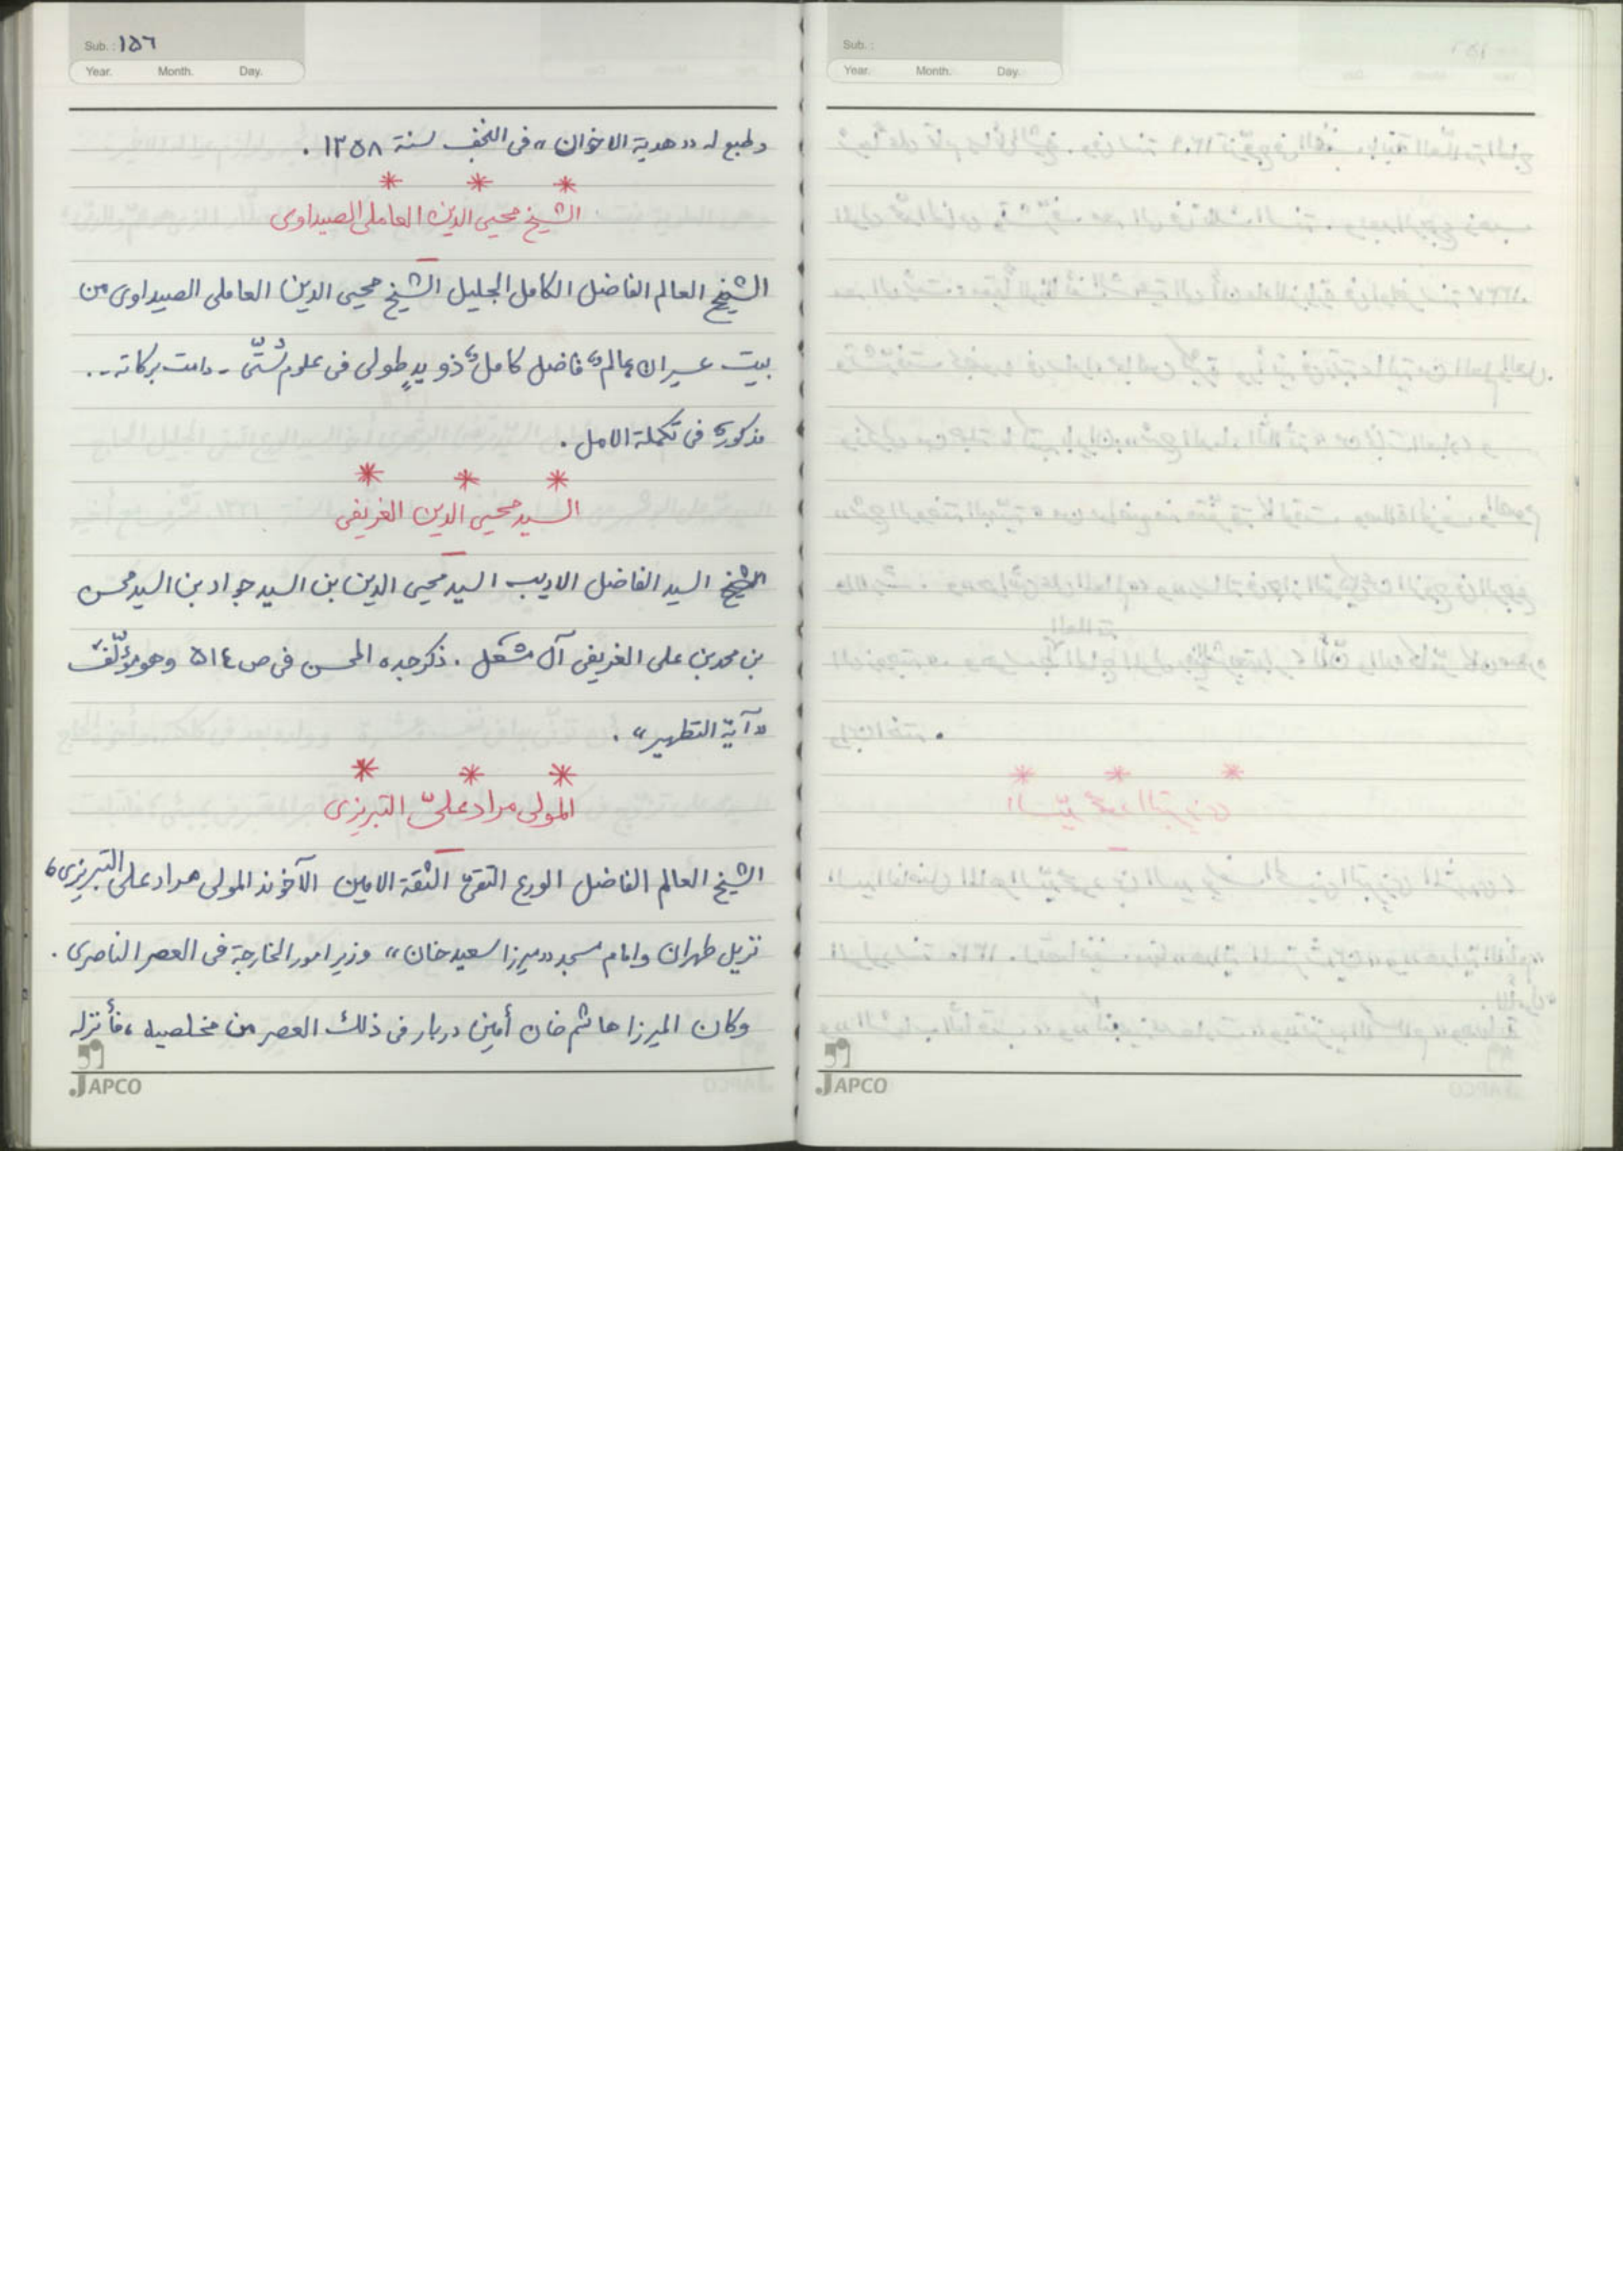 Sub. : ١٥٦
Year. Month. Day.
وطبع له «هدية الاخوان» فى النجف لسنة ١٣٥٨ .
* * *
الشيخ محيى الدين العاملى الصيداوى
الشيخ العالم الفاضل الكامل الجليل الشيخ محيى الدين العاملى الصيداوى من
بيت عسيران عالم فاضل كامل ذو يدٍ طولى فى علوم شتّى - دامت بركاته - .
مذكور فى تكملة الامل .
* * *
السيد محيى الدين الغريفى
السيد الفاضل الاديب السيد محيى الدين بن السيد جواد بن السيد محسن
بن محمد بن على الغريفى آل مشعل . ذكر جده المحسن فى ص ٥١٤ وهو مؤلّف
«آية التطهير» .
* * *
المولى مراد علىّ التبريزى
الشيخ العالم الفاضل الورع التقىّ الثقة الامين الآخوند المولى مراد على التبريزى،
نزيل طهران وامام مسجد «ميرزا سعيد خان» وزير امور الخارجة فى العصر الناصرى .
وكان الميرزا هاشم خان أمين دربار فى ذلك العصر من مخلصيه، فأنزله
JAPCO
Sub. :
Year. Month. Day.
JAPCO